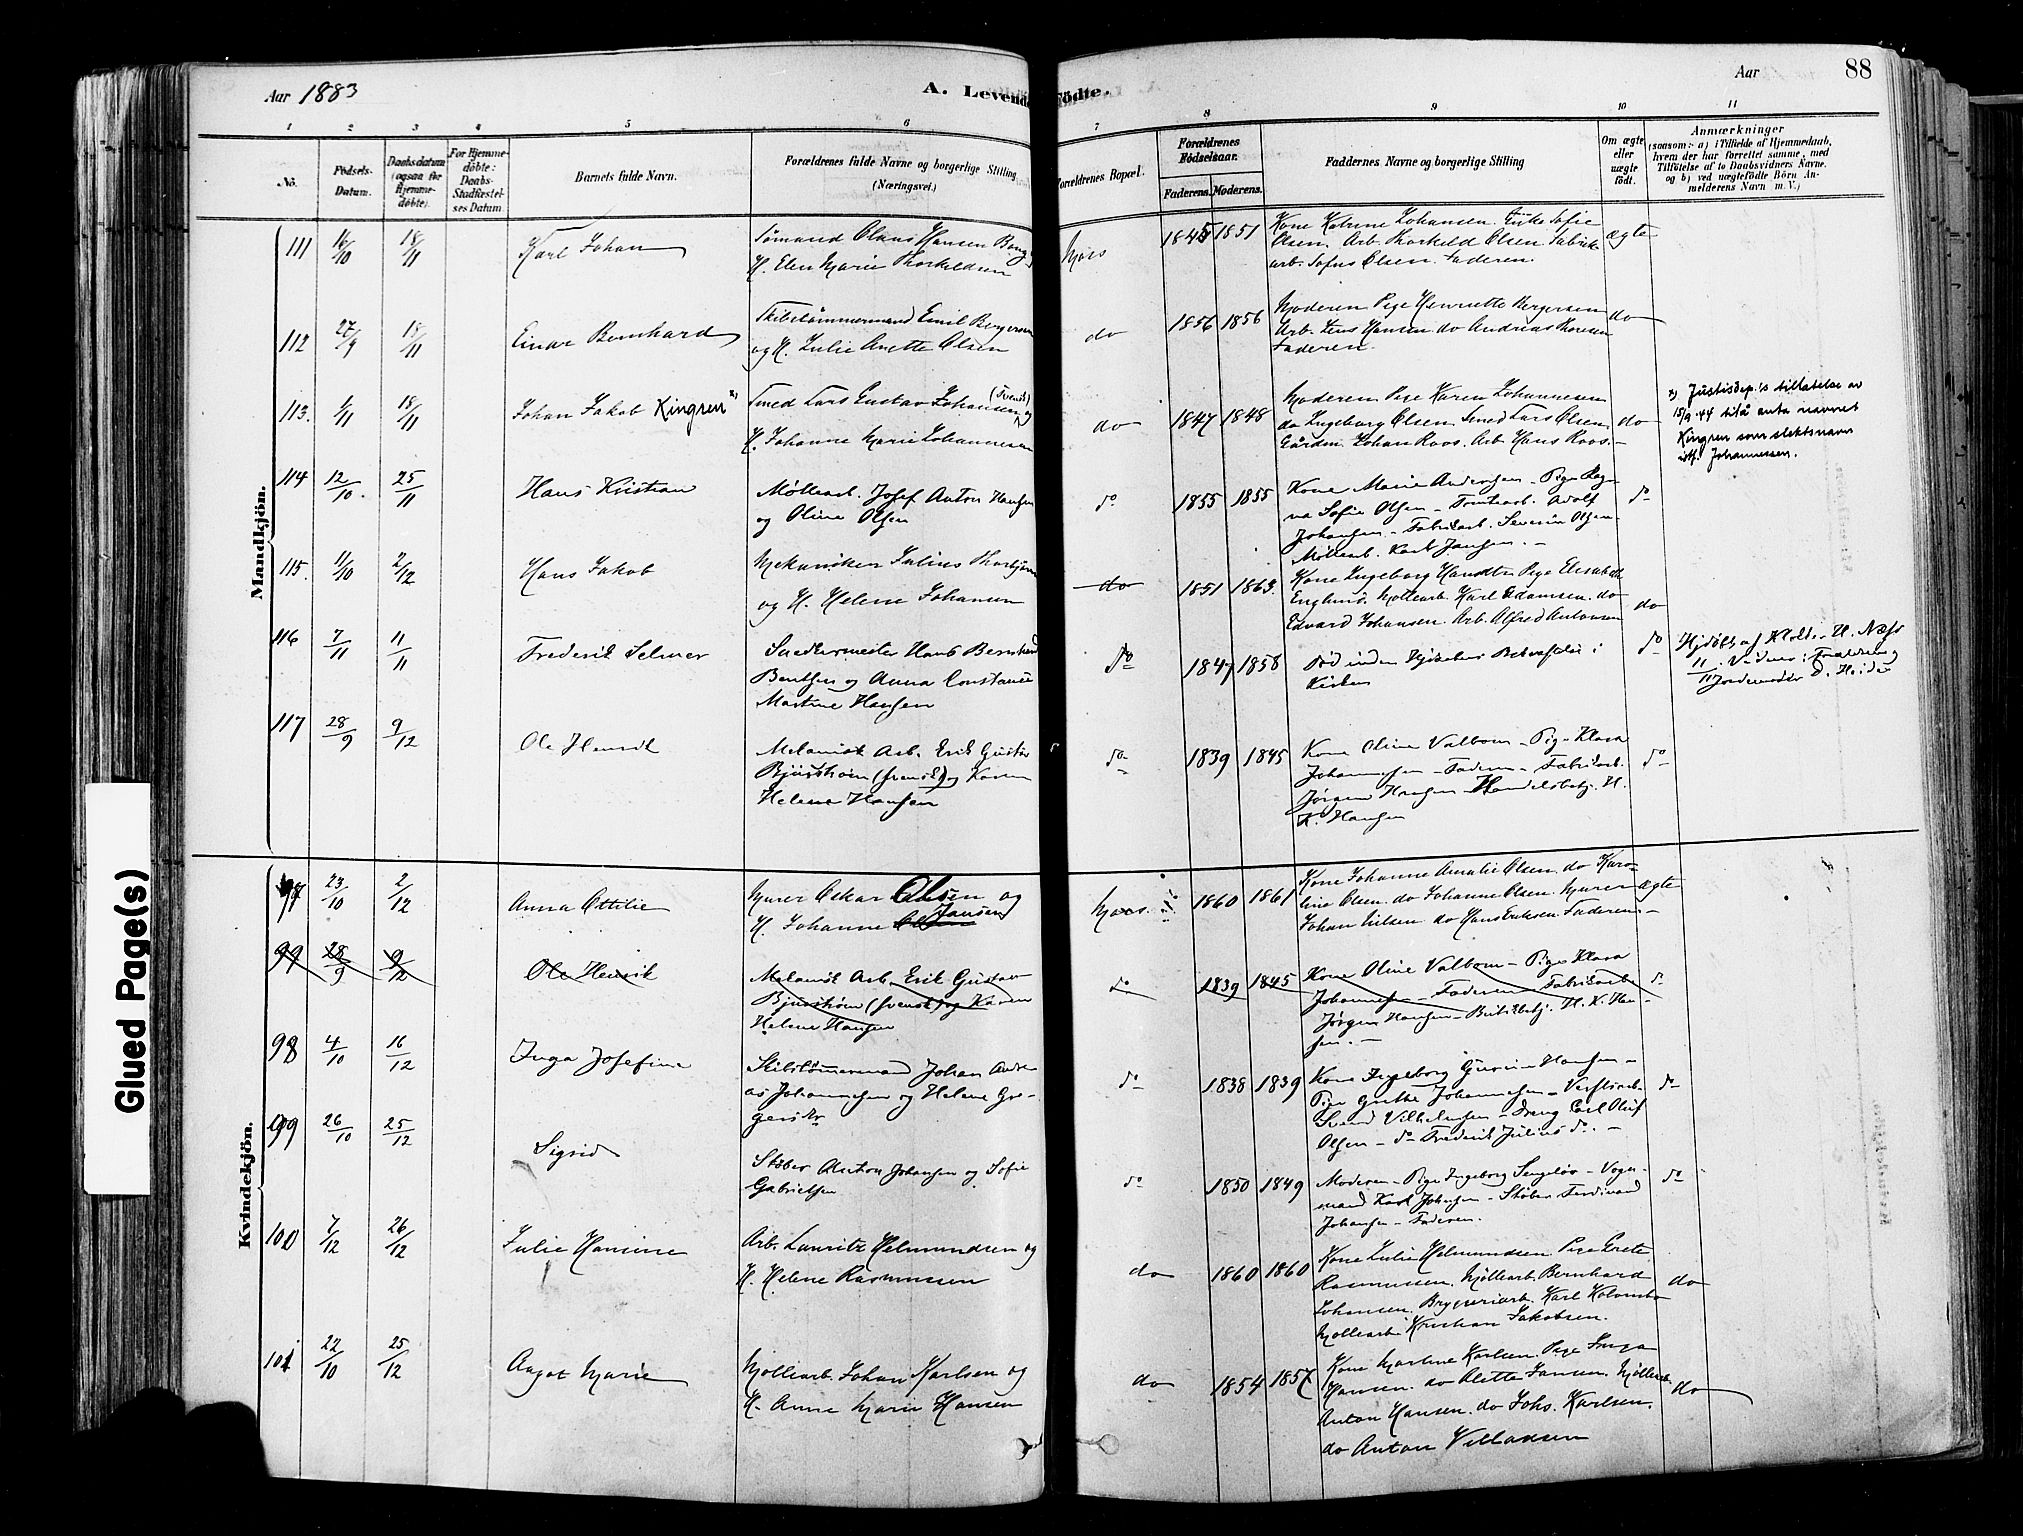 Aar 1883
A. Levende
Fødte.
Aar
88
1 2 3 4 5 6 7 8 9 10 11
No.
Fødsels-
Datum.
Daabsdatum
(ogsaa for
Hjemme-
døbte).
For Hjemme-
døbte:
Daabs-
Stadfæstel-
ses Datum
Barnets fulde Navn.
Forældrenes fulde Navne og borgerlige Stilling
(Næringsvei.)
Forældrenes Bopæl.
Forældrenes
Fødselsaar.
Faderens. Moderens.
Faddernes Navne og borgerlige Stilling
Om ægte
eller
uægte
født.
Anmærkninger
(saasom:- a) i Tilfælde af Hjemmedaab,
hvem der har forrettet samme, med
Tilføielse af to Daabsvidners Navne.
og b) ved uægtefødte Børn An-
melderens Navn m. V.)
Mandkjön.
111 16/10 18/11 Karl Johan
Sømand Claus Hansen Bang
H. Elen Marie Thorkeldsen
Moss 1845 1851
Kone Katrine Johansen. Enke Sofie
Olsen. Arb. Thorkeld Olsen Fabrik
arb. Sofus Olsen. Faderen.
ægte
112 27/9 18/11 Einar Bernhard
Skibstømmermand Emil Bergersen
og H. Julie Anette Olsen
do 1856 1856
Moderen Pige Henriette Bergersen
Arb. Jens Hansen do Andreas Thoresen
Faderen.
do
113. 1/11 18/11 Johan Jakob Kingren x)
Smed Lars Gustav Johansen (Svensk) og
H. Johanne Marie Johannesen
do 1847 1848
Moderen Pige Karen Johannesen
do Ingeborg Olsen Smed Lars Olsen
Gården Johan Roos. Arb Hans Roos.
do
x) Justisdep.'s tillatelse av
15/9.44 til å anta navnet
Kingren som slektsnavn
istf. Johannessen.
114 12/10. 25/11 Hans Kristian
Møllearb. Josef Anton Hansen
og Oline Olsen
do 1855 1855
Kone Marie Andersen - Pige Rag-
na Sofie Olsen - Tomtearb. Adolf
Johansen - Fabrikarb. Severin Olsen
Møllearb. Karl Jansen. -
do
115. 11/10 2/12 Hans Jakob
Mekaniker Julius Thorbjørnsen
og H. Helene Johansen
do 1851 1863.
Kone Ingeborg Handt Pige Elisabeth
Englund. Møllearb Karl Adamsen. do
Edvard Johansen. Arb. Alfred Antonsen
do
116 7/11 11/11 Frederik Selmer
Snedkermester Hans Bernhard
Bentsen og Anna Constance
Martine Hansen
do 1847 1858
Død inden Daabens Bekræftelse i
Kirken
do
Hjdøbt af Kloks. H. Næss
11/11. Vidner: Faderen og
Jordemoder D. Heide
117 28/9 9/12 Ole Henrik
Mekanisk Arb. Erik Gustav
Bjurstrøm (svensk) og Karen
Helene Hansen
do 1839 1845
Kone Oline Valbom - Pige Klara
Johannesen - Faderen - Fabrikarb.
Jørgen Hansen - Handelsbetj. H.
K. Hansen
do
Kvindekjön.
97 23/10 2/12 Anna Ottilie
Murer Oskar Olsen og
H. Johanne Olsen Jansen
Moss. 1860 1861
Kone Johanne Amalie Olsen do Karo-
line Olsen. do Johanne Olsen. Murer
Johan Nilsen do Hans Eriksen Faderen. -
ægte
99 28/9 9/12 Ole Henrik
Mekanisk Arb. Erik Gustav
Bjurstrøm (svensk) og Karen
Helene Hansen
do 1839 1845
Kone Oline Valbom - Pige Klara
Johannesen - Faderen - Fabrikarb
Jørgen Hansen - Butikbetj. H. K. Han-
sen. -
do
98 4/10 16/12 Inga Josefine
Skibstømmermand Johan Andre-
as Johannesen og Helene Gre-
gersdtr
do 1838 1839
Kone Ingeborg Gurine Hansen -
Pige Grethe Johannesen - Verftsarb.
Svend Vilhelmsen - Dreng Carl Oluf
Olsen - do Frederik Julius do. -
do
99 26/10 25/12 Sigrid
Støber Anton Johansen og Sofie
Gabrielsen
do 1850 1849
Moderen - Pige Ingeborg Sengeløv - Vogn-
mand Karl Johnsen - Støber Ferdinand
Johansen - Faderen.
do
100 7/12 26/12 Julie Hansine
Arb. Lauritz Helmundsen og
H. Helene Rasmussen
do 1860 1860
Kone Julie Helmundsen Pige Grete
Rasmussen. Møllearb. Bernhard
Johansen. Bryggeriarb. Karl Kolombo
Møllearb Kristian Jakobsen.
do
101 22/10 25/12 Aagot Marie
Møllearb. Johan Karlsen og
H. Anne Marie Hansen
do 1854 1857
Kone Martine Karlsen. Pige Inga
Hansen. do Alette Jansen. Møllearb.
Anton Hansen. do Johs. Karlsen.
do Anton Villadsen
do
Glued Page(s)